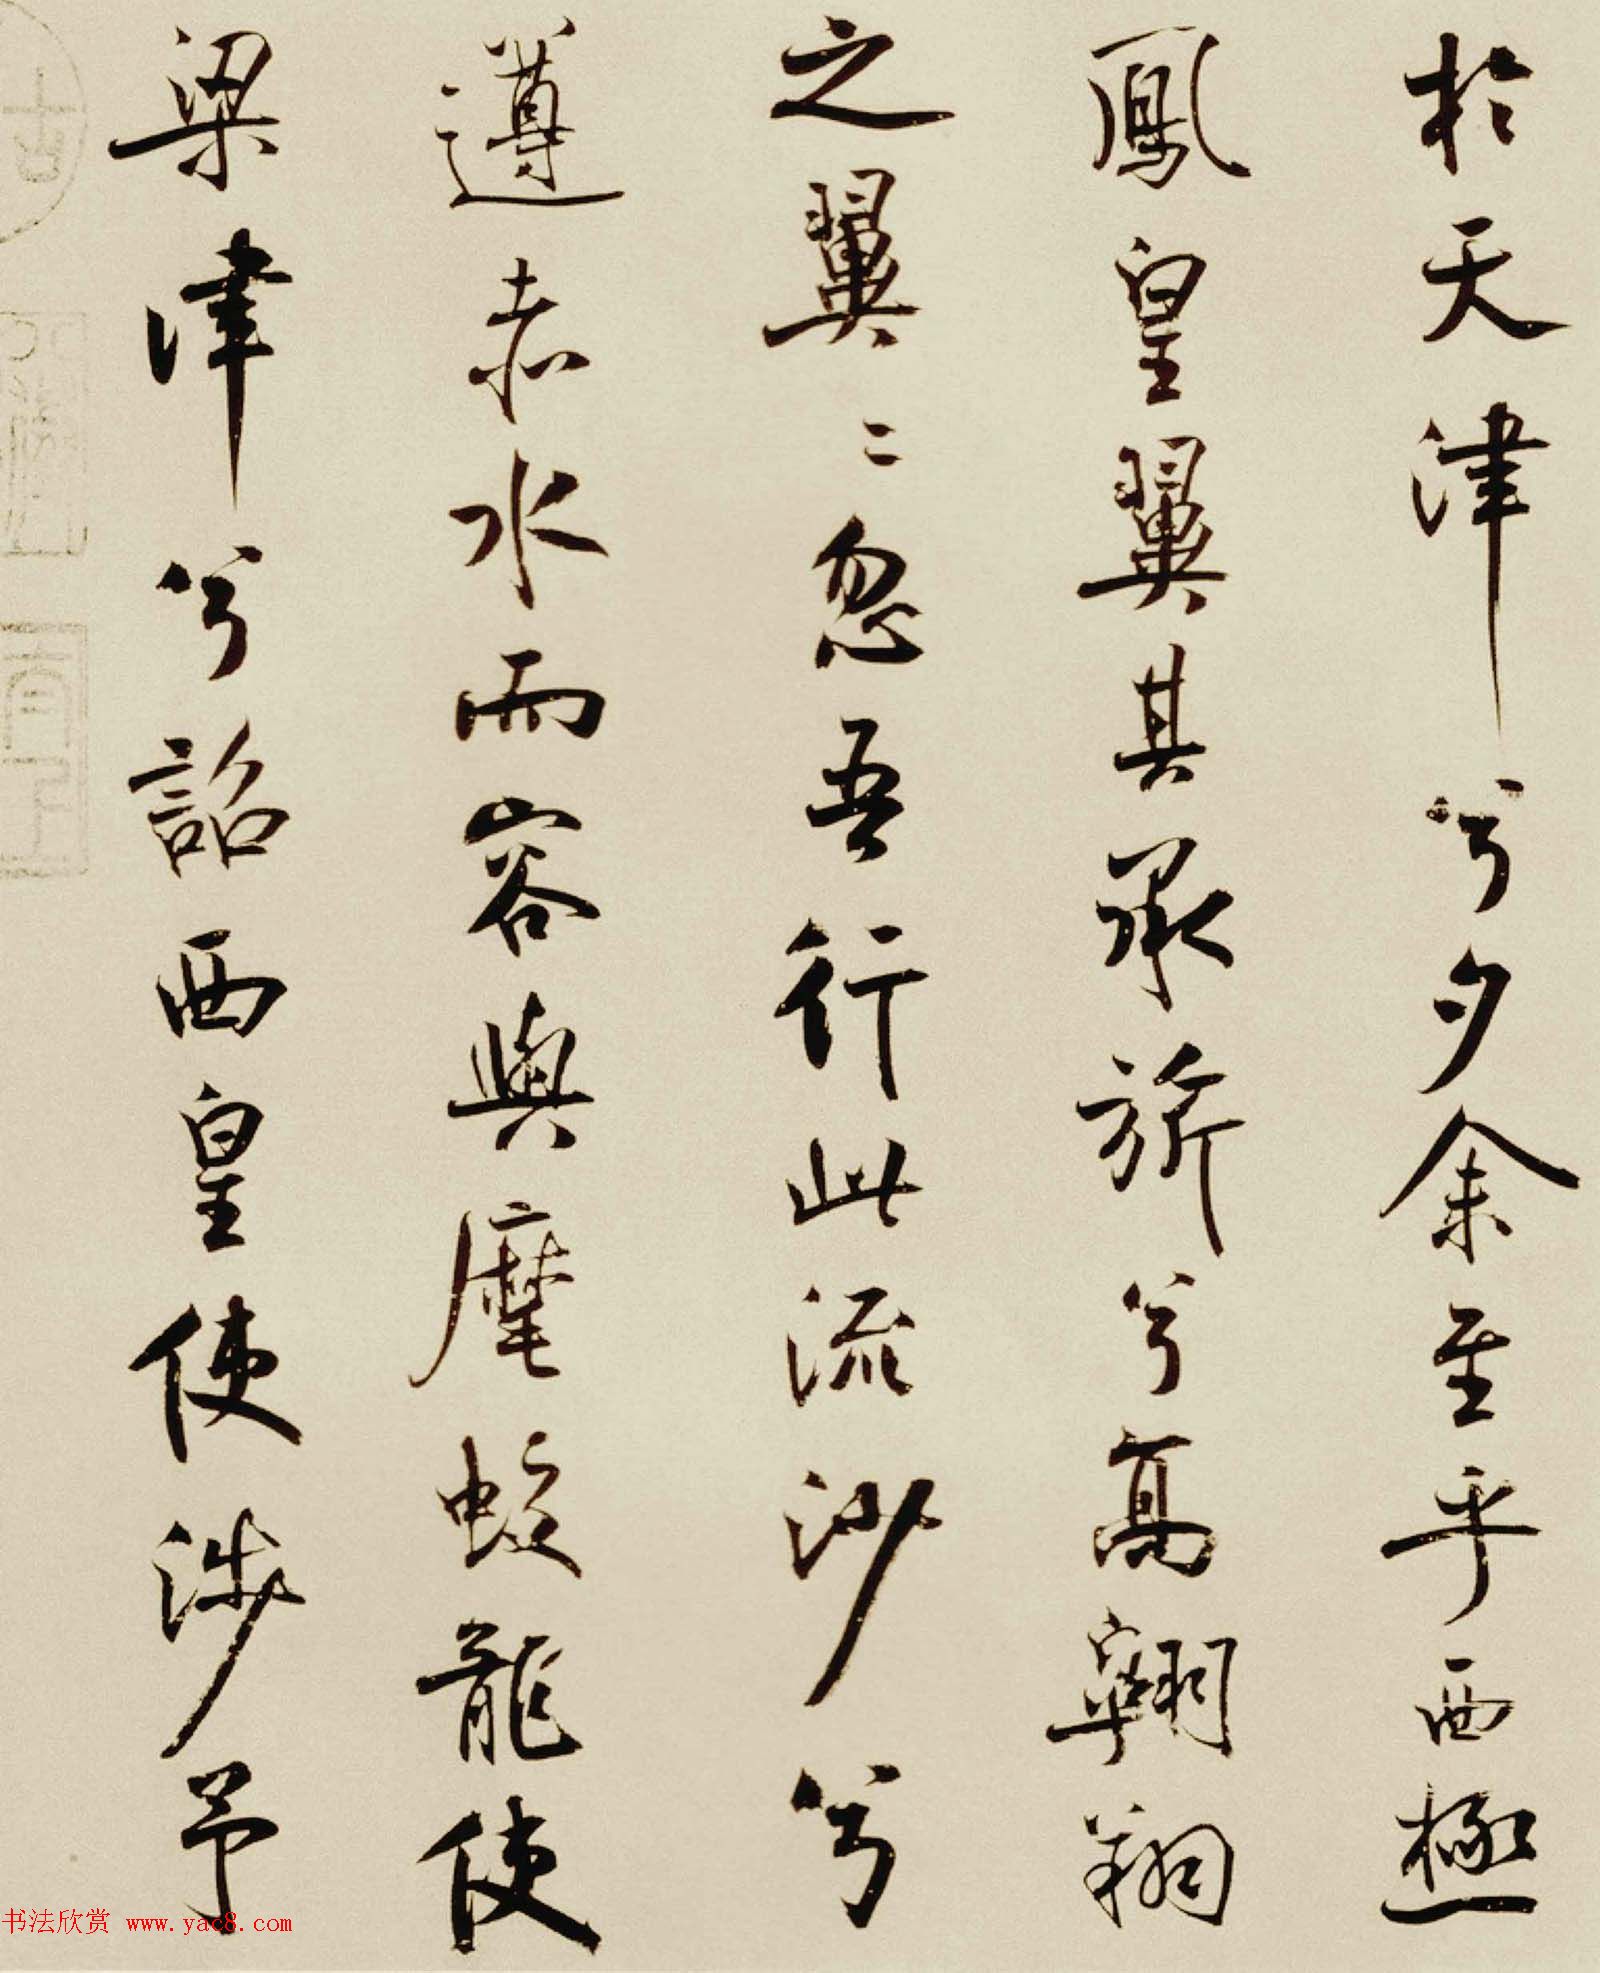 於天津兮夕余至乎西極
鳳皇翼其承旂兮高翱翔
之翼〻忽吾行此流沙兮
遵赤水而容與麾蛟龍使
梁津兮詔西皇使涉予
书法欣赏 www.yac8.com